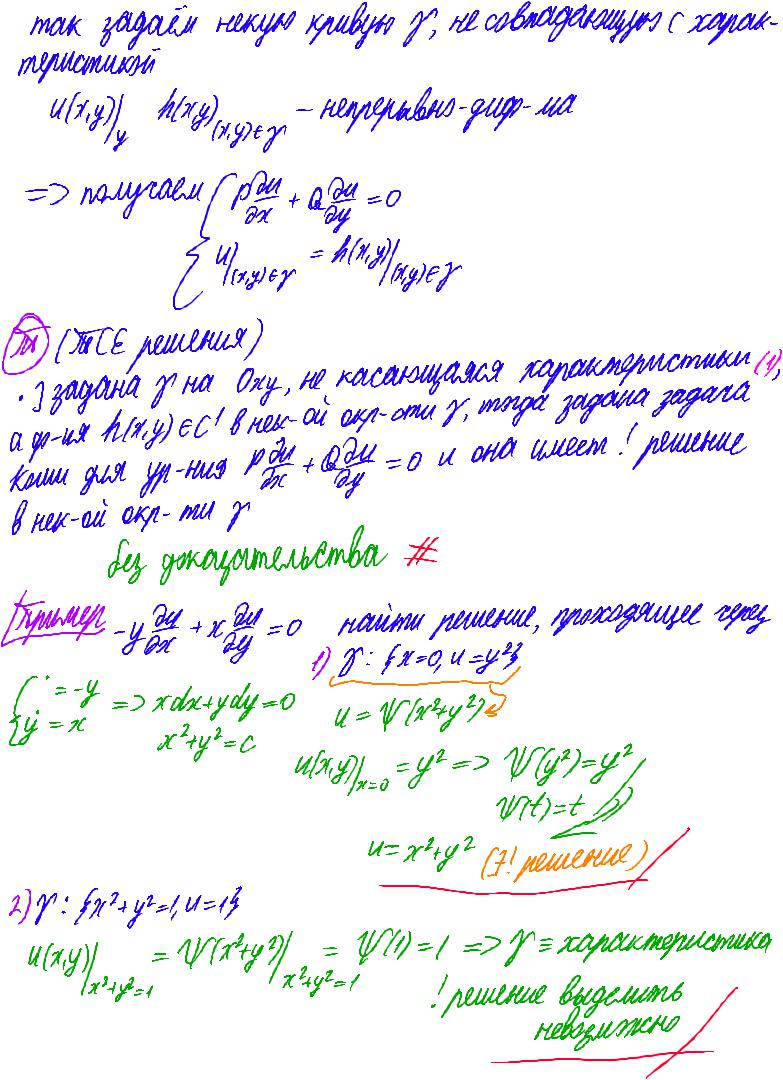 так задаём некую кривую γ, не совпадающую с харак-
теристикой
u(x,y)|_γ h(x,y)_{(x,y)∈γ} – непрерывно-диф-ма
=> получаем { P ∂u/∂x + Q ∂u/∂y = 0
u|_{(x,y)∈γ} = h(x,y)|_{(x,y)∈γ}
Тh (ТСЕ решения)
· ] задана γ на Oxy, не касающаяся характеристики (1),
а ф-ия h(x,y) ∈ C¹ в нек-ой окр-оти γ, тогда задана задача
Коши для ур-ния P ∂u/∂x + Q ∂u/∂y = 0 и она имеет ! решение
в нек-ой окр-ти γ
без доказательства #
Пример -y ∂u/∂x + x ∂u/∂y = 0 найти решение, проходящее через
1) γ: {x=0, u=y²}
{ ˙ = -y => xdx+ydy=0
ẏ = x x²+y²=c
u = Ψ(x²+y²)
u(x,y)|_{x=0} = y² => Ψ(y²)=y²
Ψ(t)=t
u=x²+y² (∃! решение)
2) γ: {x²+y²=1, u=1}
u(x,y)|_{x²+y²=1} = Ψ(x²+y²)|_{x²+y²=1} = Ψ(1)=1 => γ ≡ характеристика
! решение выделить
невозможно